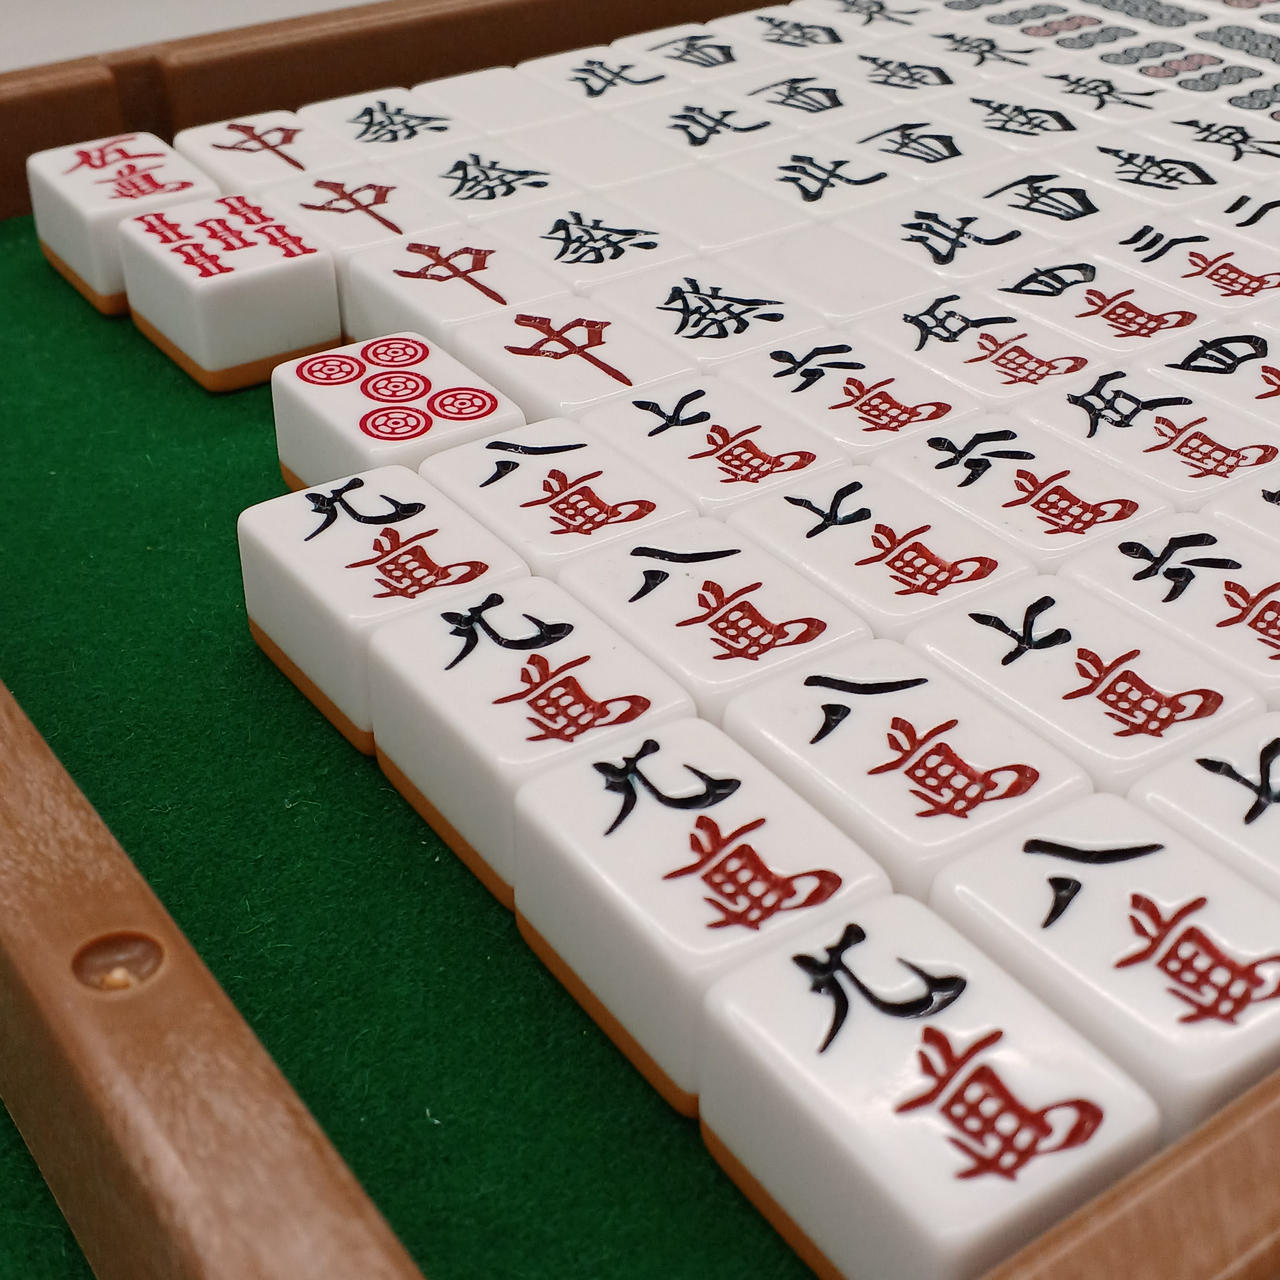 伍萬
中 發 北 西 南 東
中 發 北 西 南 東
中 發 北 西 南 東
中 發 北 西 南 東
九萬 八萬 七萬 六萬 伍萬 四萬 三萬 二
九萬 八萬 七萬 六萬 伍萬 四萬
九萬 八萬 七萬 六萬
九萬 八萬 七